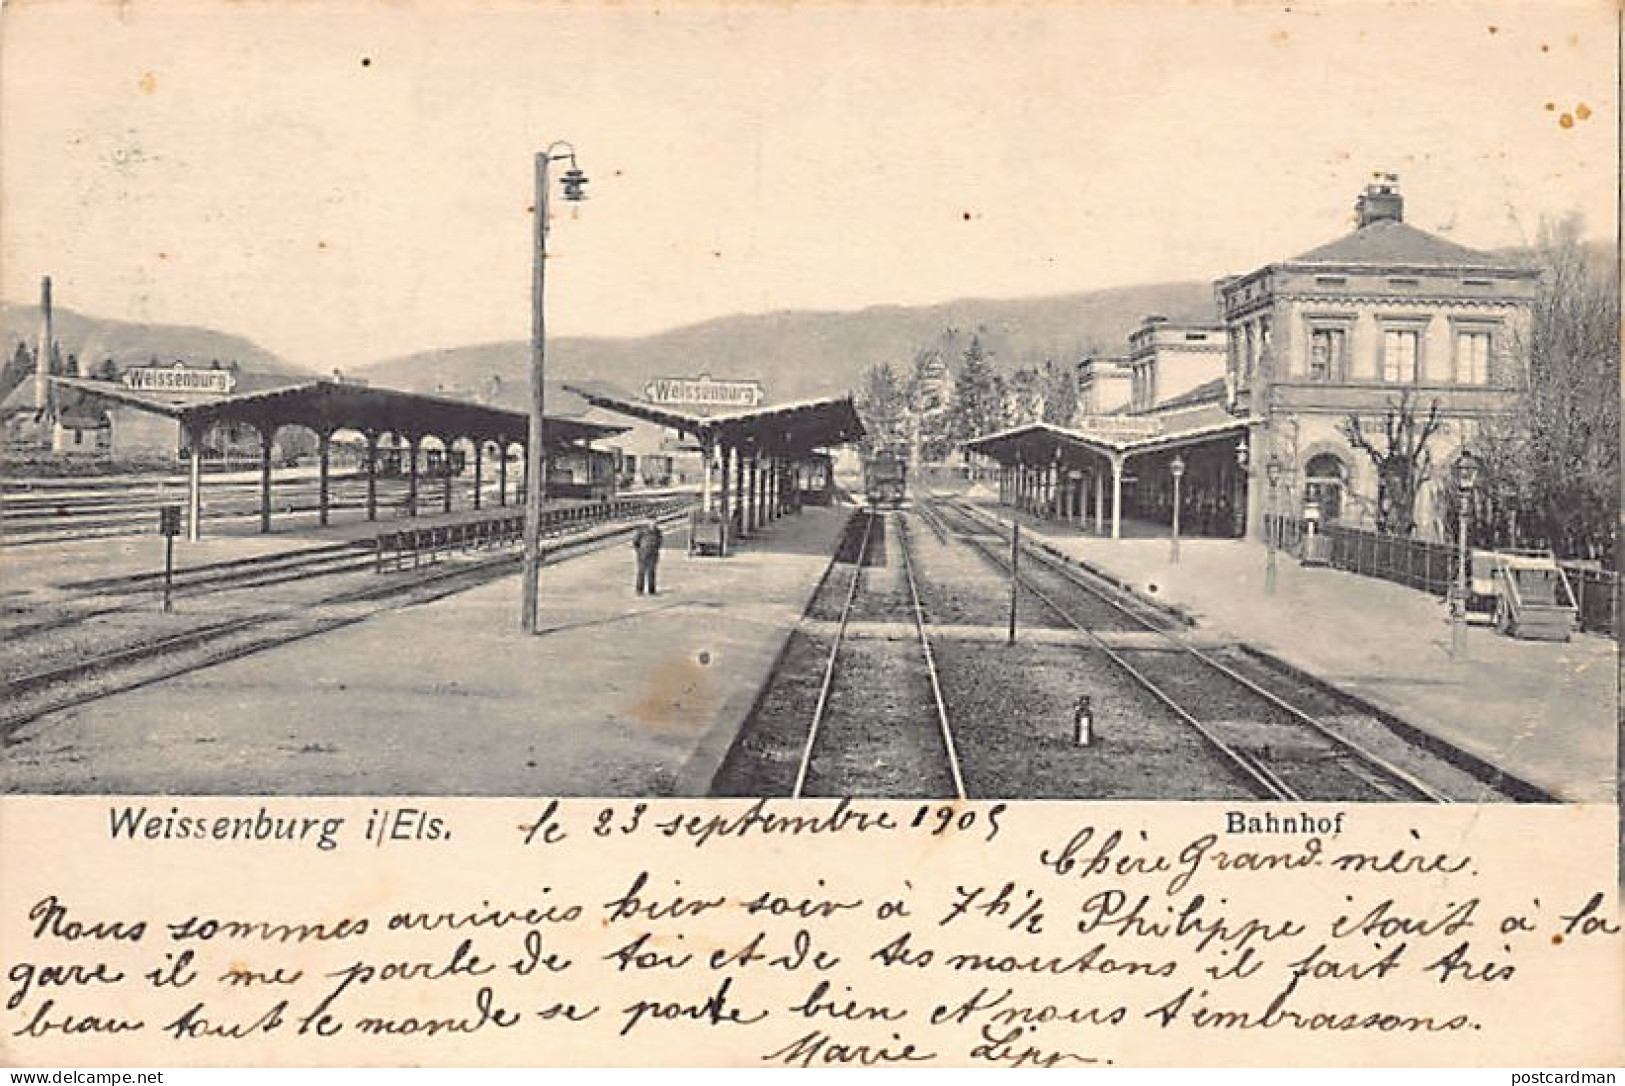 Weissenburg
Weissenburg
Weissenburg i/Els.
le 23 septembre 1905
Bahnhof
Chère Grand-mère.
Nous sommes arrivées hier soir à 7 h ½ Philippe était à la
gare il me parle de toi et de tes moutons il fait très
beau tout le monde se porte bien et nous t'embrassons.
Marie Lipp.
www.delcampe.net
postcardman